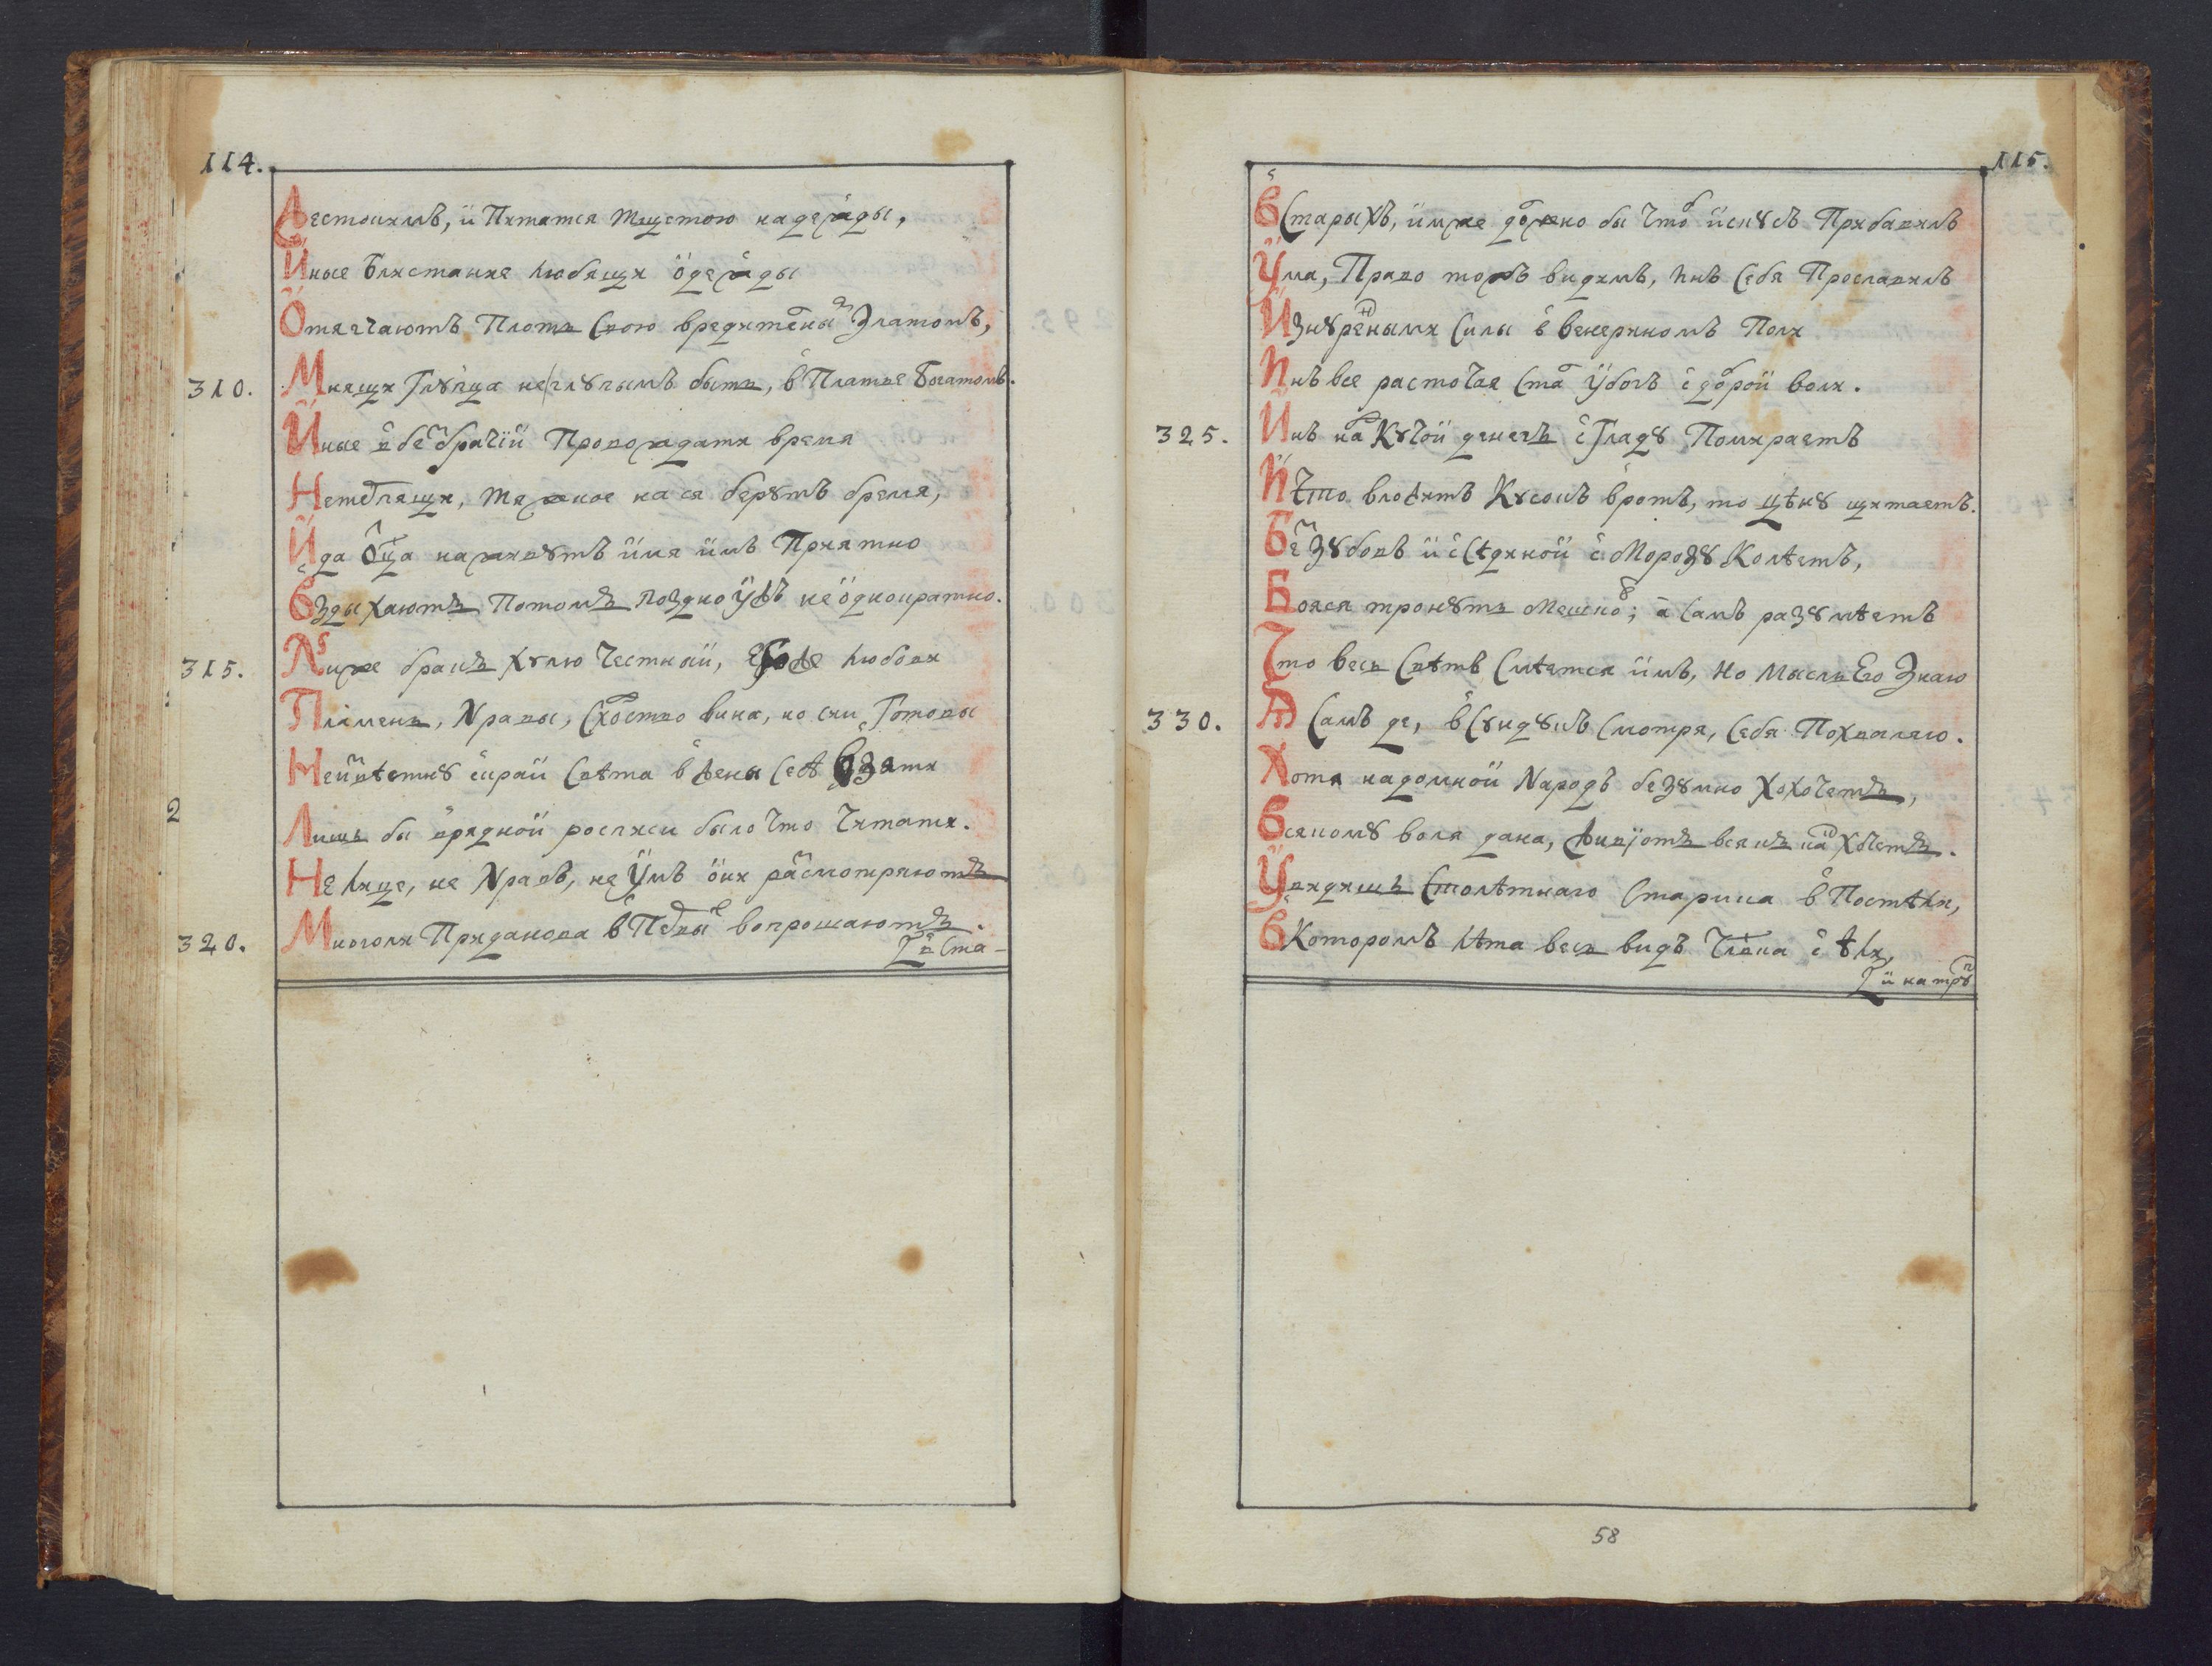 114.
Лестоиямъ, и Питатся тщетою надежды,
Иные блистание любящи одежды
Отягчаютъ Плоть Свою вредителны Златомъ,
310. Мнящи Глупца неглупымъ быть, в Платье богатомъ.
Иные в безбрачїи Провождати время
Нетерпящи, тяжкое на ся берутъ бремя,
И да Отца наживутъ имя имъ Приятно
Вздыхаютъ Потомъ поздно ужъ не однократно.
315. Ниже бракъ хулю Честный, ниже любови
Пламень, Нравы, Сходство вина, но сии Готовы
Неизвѣстну с край Свѣта в жены Себѣ Взяти
Лишь бы врядной росписи было Что Читати.
Не лице, не Нравъ, не Умъ они разсмотряютъ
320. Многоли Приданова в Первы вопрошаютъ.
в Ста-
115.
В Старыхъ, имже должно бы что искусъ Прибавилъ
Ума, Право тожъ видимъ, Инъ Себя Прославилъ
Изнуренными Силы в Венериномъ Поли
Инъ все расточая Сталъ Убогъ с доброй воли.
325. Инъ над Кучой денегъ с Гладу Помираетъ
И Что вложитъ Кусокъ в ротъ, то цѣну щитаетъ.
Без Зубовъ и с Сѣдиной с Морозу Колѣетъ,
Бояся тронуть Мешковъ; а Самъ разумѣетъ
Что весь Свѣтъ Смѣется имъ, Но Мысль Его Знаю
330. Я Самъ де, в Сундукъ Смотря, Себя Похваляю.
Хотя надомной Народъ безумно Хохочетъ,
Всякому воля дана, живїотъ всякъ какъ Хочетъ.
Увидишь Столѣтнаго Старика в Постѣли,
В Которомъ лѣта весь видъ Члвка с ѣли,
и на труп
58